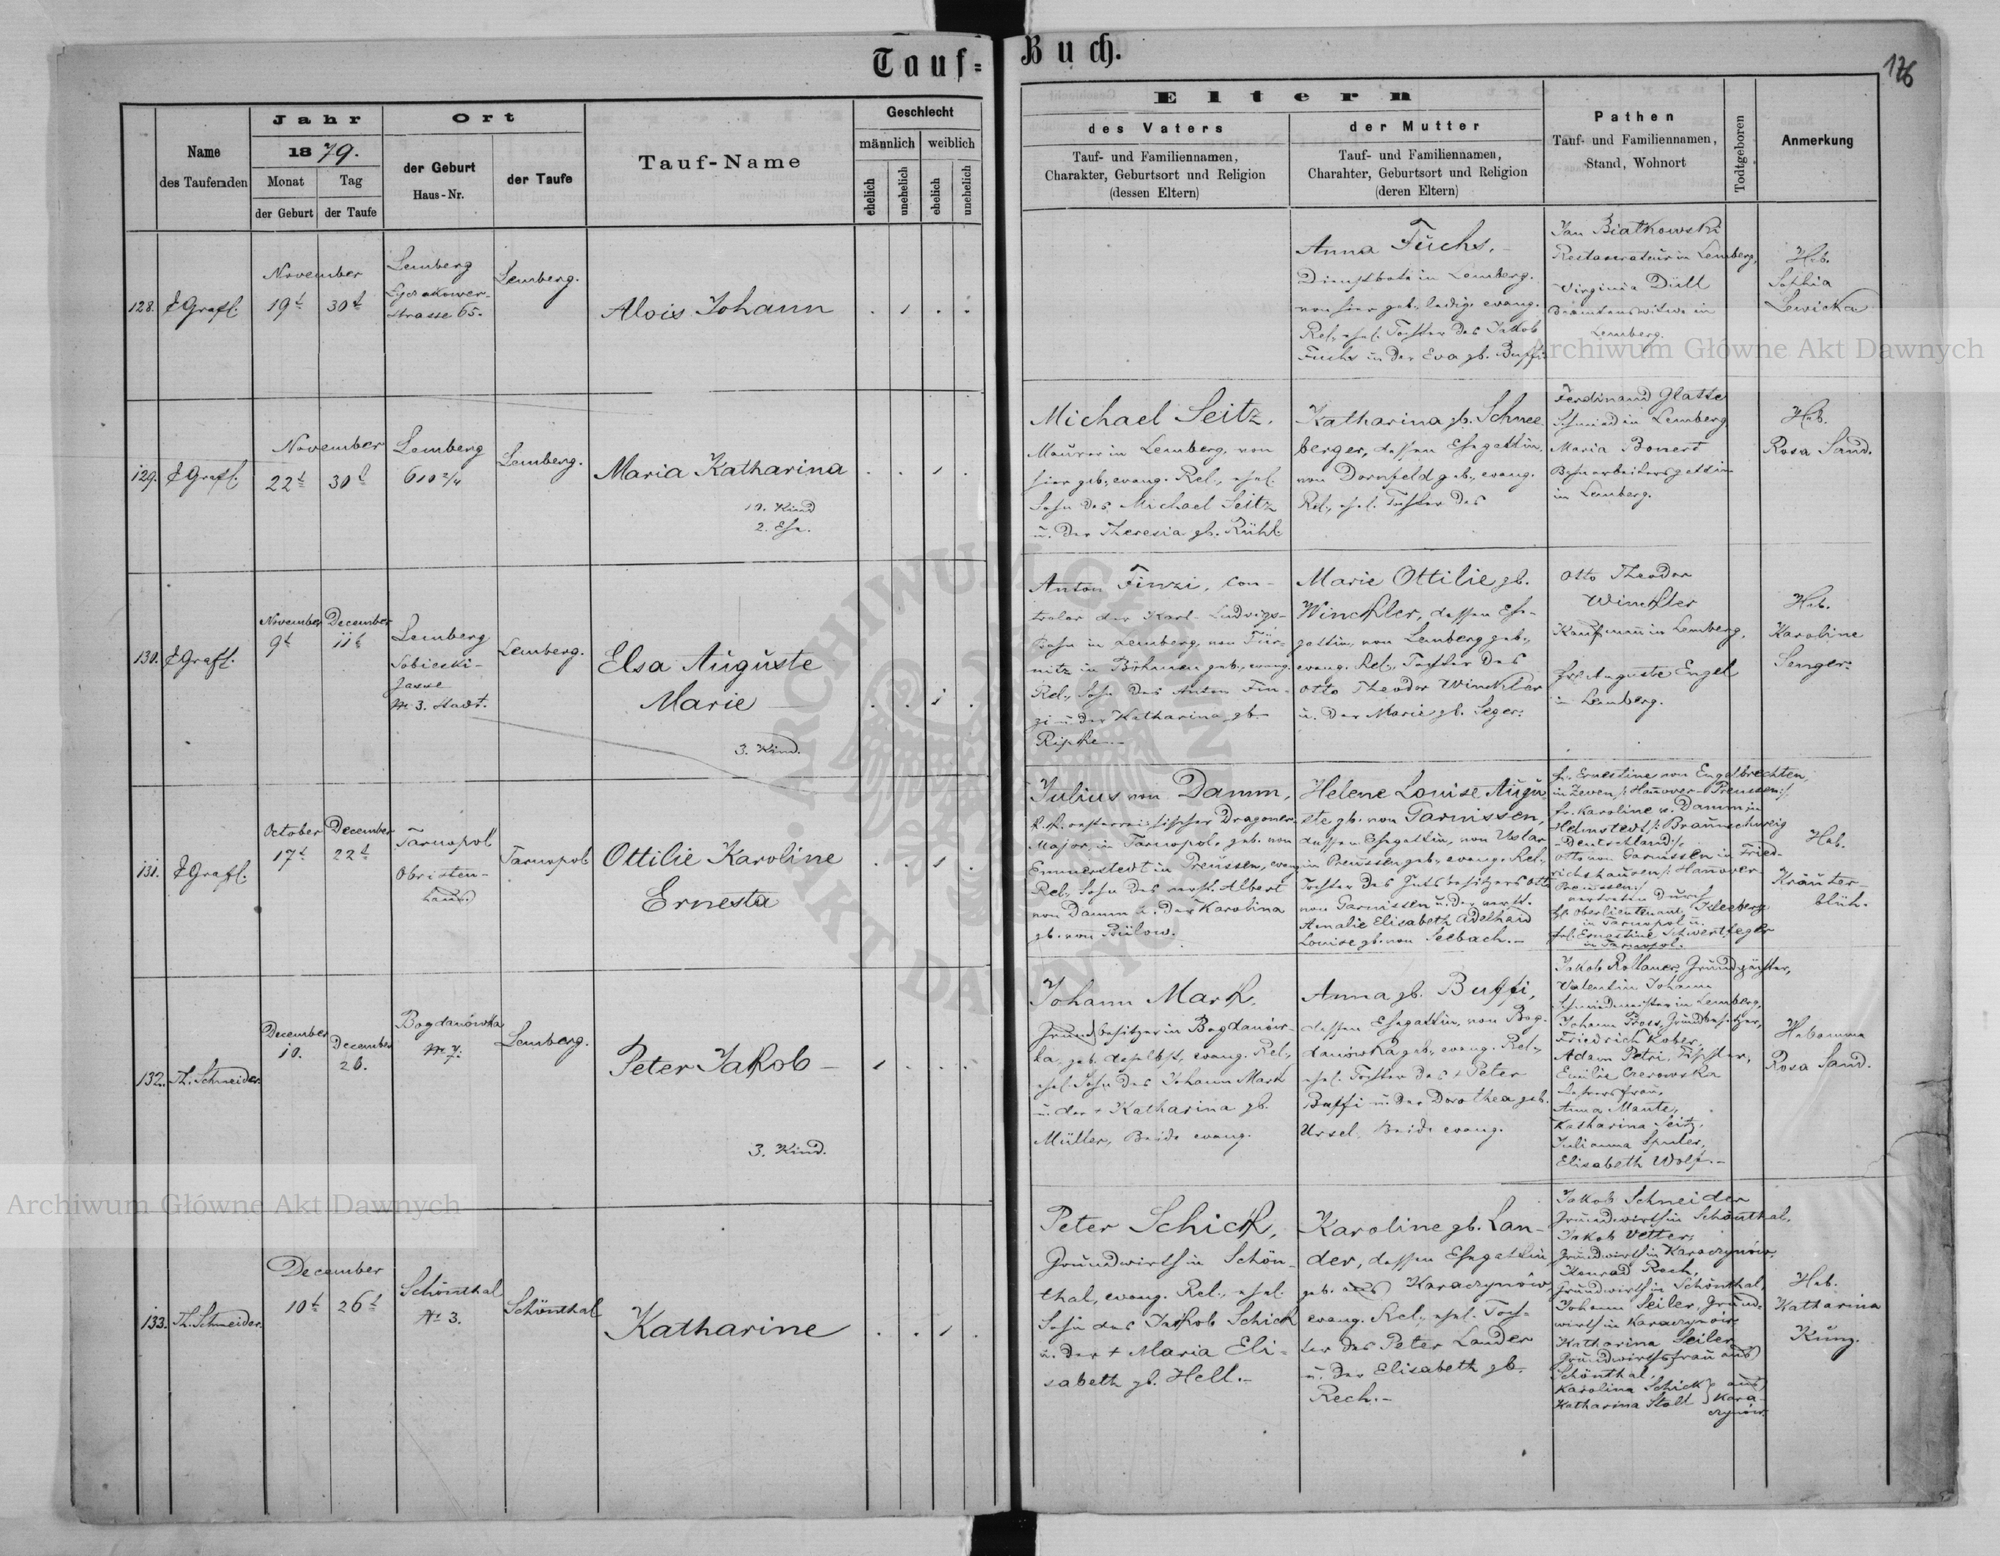 Tauf=
Buch.
176
Name
des Taufenden
Jahr
1879.
Monat
der Geburt
Tag
der Taufe
Ort
der Geburt
Haus-Nr.
der Taufe
Tauf-Name
Geschlecht
männlich
weiblich
ehelich
unehelich
ehelich
unehelich
Eltern
des Vaters
Tauf- und Familiennamen,
Charakter, Geburtsort und Religion
(dessen Eltern)
der Mutter
Tauf- und Familiennamen,
Charahter, Geburtsort und Religion
(deren Eltern)
Pathen
Tauf- und Familiennamen,
Stand, Wohnort
Todtgeboren
Anmerkung
128.
Grafl.
November
19t
30t
Lemberg
Lyczakower-
Strasse 65.
Lemberg.
Alois Johann
Anna Fuchs,
Dienstbote in Lemberg,
von hier geb., ledig, evang.
Rel., ehel. Tochter des Jakob
Fuchs u. der Eva gb. Buffi.
Jan Białkowski
Restaurateur in Lemberg,
Virginia Düll
Beamtenswitwe in
Lemberg.
Heb.
Sophia
Lewicka
129.
Grafl.
November
22t
30t
Lemberg
610 2/4
Lemberg.
Maria Katharina
10. Kind
2. Ehe.
Michael Seitz,
Maurer in Lemberg, von
hier geb., evang. Rel., ehel.
Sohn des Michael Seitz
u. der Theresia gb. Rühl
Katharina gb. Schnee-
berger, dessen Ehegattin,
von Dornfeld geb., evang.
Rel., ehel. Tochter des
Ferdinand Glatte
Schmied in Lemberg
Maria Bonert
Bahnarbeitersgattin
in Lemberg.
Heb.
Rosa Sand.
130.
Grafl.
November
9t
December
11t
Lemberg
Sobieski-
gasse
Nr 3. Stadt.
Lemberg.
Elsa Auguste
Marie
3. Kind.
Anton Finzi, Con-
trolor der Karl Ludwigs-
bahn in Lemberg, von Tür-
nitz in Böhmen geb., evang.
Rel., Sohn des Anton Fin-
zi u. der Katharina gb.
Ripke.-
Marie Ottilie gb.
Winckler, dessen Ehe-
gattin, von Lemberg geb.,
evang. Rel., Tochter des
Otto Theodor Winckler
u. der Marie gb. Seger.
Otto Theodor
Winckler
Kaufmann in Lemberg,
Frl. Auguste Engel
in Lemberg.
Heb.
Karoline
Senger.
131.
Grafl.
October
17t
December
22t
Tarnopol
Obristen-
Tarnopol
Ottilie Karoline
Ernesta
Julius von Damm,
k.k. oesterreichischer Dragoner-
Major, in Tarnopol, geb. von
Emmerstedt in Preussen, evang.
Rel., Sohn des verst. Albert
von Damm u. der Karolina
gb. von Bülow.
Helene Louise Augu-
ste gb. von Garnissen,
dessen Ehegattin, von Uslar
in Preussen geb., evang. Rel.,
Tochter des Gutsbesitzers Otto
von Garnissen u. der verst.
Amalie Elisabeth Adelhaid
Louise gb. von Seebach.-
Fr. Ernestine von Engelbrechten,
in Zeven /: Hannover-Preussen:/
Fr. Karoline v. Damm in
Helmstedt /: Braunschweig
Deutschland:/
Otto von Garnissen in Fried-
richshausen /: Hanover
Preussen:/
vertreten durch
H. Oberlieutenant Kleeberg
in Tarnopol u.
Frl. Ernestine Schwertfeger
in Tarnopol.
Heb.
Kräuter-
blüh.
132.
Th. Schneider.
December
10.
December
26.
Bogdanówka
Nr 7.
Lemberg.
Peter Jakob
3. Kind.
Johann Mark,
Grundbesitzer in Bogdanów-
ka, geb. daselbst, evang. Rel.,
ehel. Sohn des Johann Mark
u. der + Katharina gb.
Müller, Beide evang.
Anna gb. Buffi,
dessen Ehegattin, von Bog-
danówka geb., evang. Rel.,
ehel. Tochter des + Peter
Buffi u. der Dorothea geb.
Ursel, Beide evang.
Jakob Rollauer, Grundpächter,
Valentin Johann
Schmiedmeister in Lemberg,
Johann Pross, Grundbesitzer,
Friedrich Kober,
Adam Petri, Tischler,
Emilie
Lehrersfrau,
Anna Mante,
Katharina Seitz,
Julianna Spuler,
Elisabeth Wolf.-
Hebamme
Rosa Sand.
133.
Th. Schneider.
December
10t
26t
Schönthal
Nr 3.
Schönthal
Katharine
Peter Schick,
Grundwirth in Schön-
thal, evang. Rel., ehel.
Sohn des Jakob Schick
u. der + Maria Eli-
sabeth gb. Hell.-
Karoline gb. Lan-
der, dessen Ehegattin
geb. aus Karaczynów,
evang. Rel., ehel. Toch-
ter des Peter Lander
u. der Elisabeth gb.
Rech.-
Jakob Schneider
Grundwirth in Schönthal,
Jakob Vetter,
Grundwirth in Karaczynów,
Konrad Rech,
Grundwirth in Schönthal,
Johann Seiler, Grund-
wirth in Karaczynów
Katharina Seiler
Grundwirthsfrau aus
Schönthal.
Karolina Schick
Katharina Stolt
aus
Kara-
czynów.
Heb.
Katharina
Küng.
Archiwum Główne Akt Dawnych
Archiwum Główne Akt Dawnych